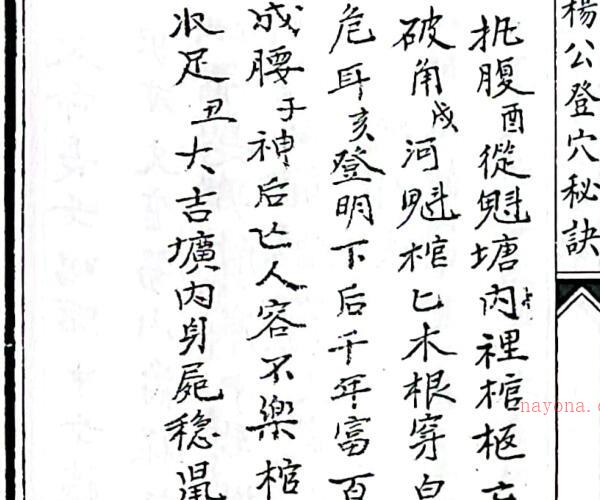 楊公登穴秘訣
執腹酉從魁塘内裡棺柩
破角戌河魁棺匕木根穿白
危耳亥登明下后千年富百
成腰子神后亡人容不樂棺
收足丑大吉壙内身屍稳
nayona.c